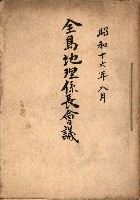 昭和十六年八月
全島地理係長會議